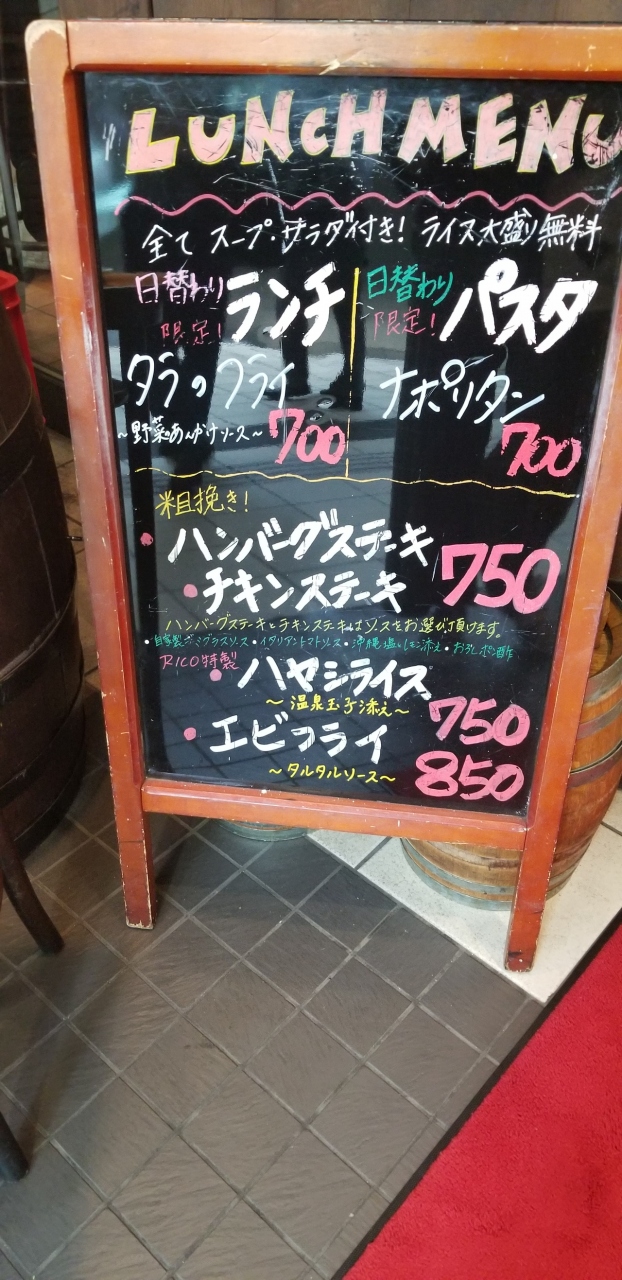 LUNCH MENU
全て スープ・サラダ付き! ライス大盛り無料
日替わり
限定!
ランチ
タラのフライ
~野菜あんかけソース~
700
日替わり
限定!
パスタ
ナポリタン
700
粗挽き!
・ハンバーグステーキ
・チキンステーキ 750
ハンバーグステーキとチキンステーキはソースをお選び頂けます。
・自家製デミグラスソース・イタリアントマトソース・沖縄塩レモン添え・おろしポン酢
RICO特製
・ハヤシライス
~温泉玉子添え~ 750
・エビフライ
~タルタルソース~ 850